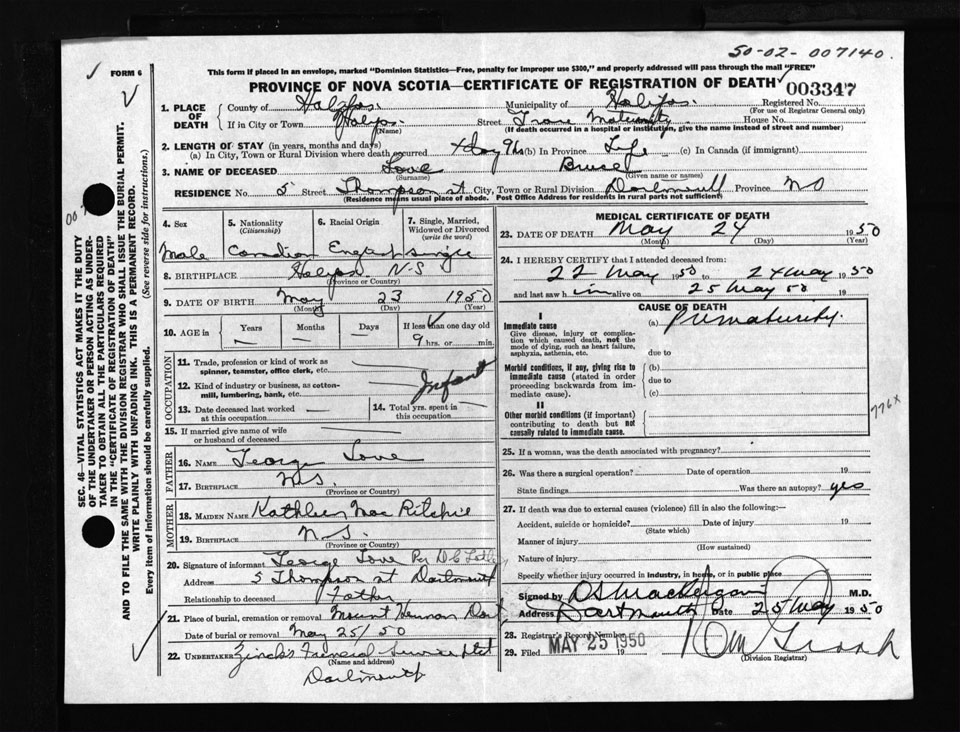 50-02-007140.
FORM 6
This form if placed in an envelope, marked "Dominion Statistics—Free, penalty for improper use $300," and properly addressed will pass through the mail "FREE"
PROVINCE OF NOVA SCOTIA—CERTIFICATE OF REGISTRATION OF DEATH
003347
1. PLACE OF DEATH
County of Halifax
Municipality of Halifax
Registered No.
(For use of Registrar General only)
If in City or Town Halifax
(Name)
Street Grace Maternity House No.
(If death occurred in a hospital or institution, give the name instead of street and number)
2. LENGTH OF STAY (in years, months and days)
(a) In City, Town or Rural Division where death occurred day 9 hs (b) In Province Life (c) In Canada (if immigrant)
3. NAME OF DECEASED Love Bruce
(Surname) (Given name or names)
RESIDENCE No. 5 Street Thompson st City, Town or Rural Division Dartmouth Province NS
(Residence means usual place of abode. Post Office Address for residents in rural parts not sufficient)
4. Sex
Male
5. Nationality
(Citizenship)
Canadian
6. Racial Origin
English
7. Single, Married, Widowed or Divorced
(write the word)
single
8. BIRTHPLACE Halifax N-S
(Province or Country)
9. DATE OF BIRTH May 23 1950
(Month) (Day) (Year)
10. AGE in
Years
Months
Days
If less than one day old
9 hrs. or min.
OCCUPATION
11. Trade, profession or kind of work as spinner, teamster, office clerk, etc.
12. Kind of industry or business, as cotton-mill, lumbering, bank, etc.
Infant
13. Date deceased last worked at this occupation
14. Total yrs. spent in this occupation
15. If married give name of wife or husband of deceased
FATHER
16. NAME George Love
17. BIRTHPLACE N.S.
(Province or Country)
MOTHER
18. MAIDEN NAME Kathleen Mac Ritchie
19. BIRTHPLACE N.S.
(Province or Country)
20. Signature of informant George Love Per D.C.
Address 5 Thompson st Dartmouth
Relationship to deceased Father
21. Place of burial, cremation or removal Mount Hermon Dart
Date of burial or removal May 25/50
22. UNDERTAKER Zinck's Funeral Service Ltd
(Name and address)
Dartmouth
MEDICAL CERTIFICATE OF DEATH
23. DATE OF DEATH May 24 1950
(Month) (Day) (Year)
24. I HEREBY CERTIFY that I attended deceased from:
22 May 1950 to 24 May 1950
and last saw him alive on 25 May 50 19
CAUSE OF DEATH
I
Immediate cause
Give disease, injury or complication which caused death, not the mode of dying, such as heart failure, asphyxia, asthenia, etc.
(a) Prematurity.
due to
Morbid conditions, if any, giving rise to immediate cause (stated in order proceeding backwards from immediate cause).
(b)
due to
(c)
II
Other morbid conditions (if important) contributing to death but not causally related to immediate cause.
776x
25. If a woman, was the death associated with pregnancy?
26. Was there a surgical operation? Date of operation 19
State findings Was there an autopsy? yes
27. If death was due to external causes (violence) fill in also the following:—
Accident, suicide or homicide? Date of injury 19
(State which)
Manner of injury
(How sustained)
Nature of injury
Specify whether injury occurred in industry, in home, or in public place
Signed by M.D.
Address Dartmouth Date 25 May 1950
28. Registrar's Record Number
29. Filed MAY 25 1950 19
(Division Registrar)
SEC. 46—VITAL STATISTICS ACT MAKES IT THE DUTY
OF THE UNDERTAKER OR PERSON ACTING AS UNDER-
TAKER TO OBTAIN ALL THE PARTICULARS REQUIRED
IN THE "CERTIFICATE OF REGISTRATION OF DEATH"
AND TO FILE THE SAME WITH THE DIVISION REGISTRAR WHO SHALL ISSUE THE BURIAL PERMIT.
WRITE PLAINLY WITH UNFADING INK. THIS IS A PERMANENT RECORD.
Every item of information should be carefully supplied. (See reverse side for instructions.)